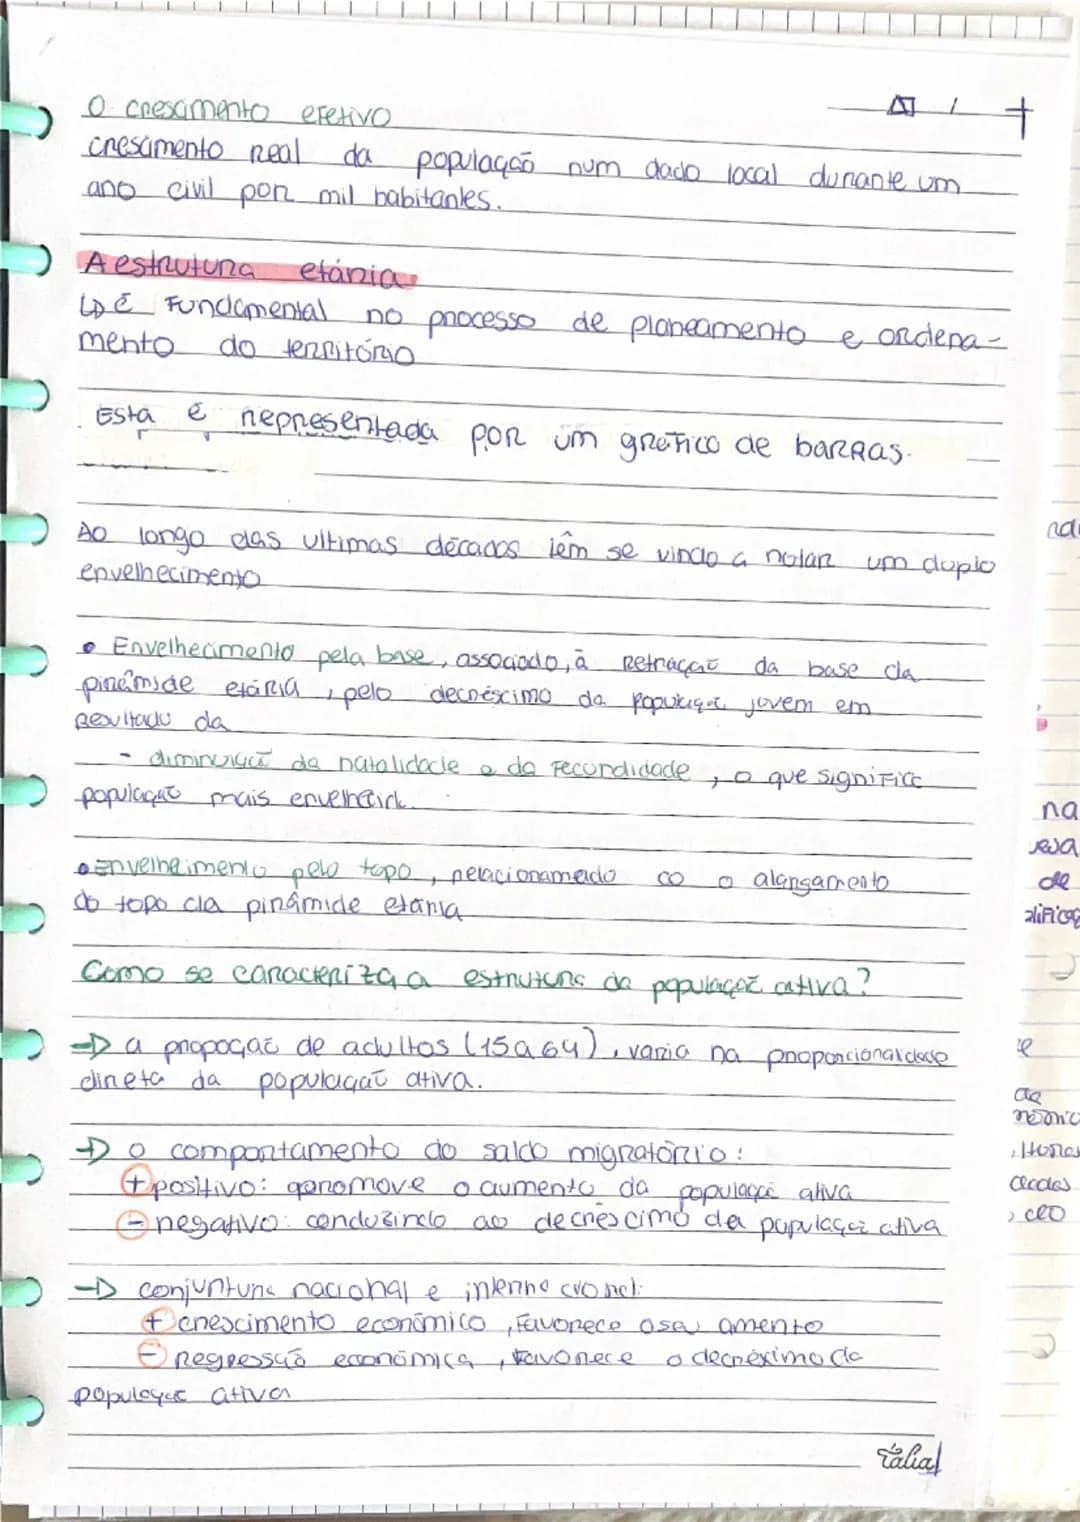 O crescimento efetivo
crescimento real da população num dado local durante um
ano civil por mil habitantes.
A estrutura etária
↳ é Fundamental no processo de planeamento e ordena-
mento do território
Esta é representada por um gráfico de barras.
Ao longo das ultimas décadas têm se vindo a notar um duplo
envelhecimento
• Envelhecimento pela base, associado, à retração da base da
pirâmide etária, pelo decréscimo da população jovem em
Resultado da
- diminuição da natalidade e da fecundidade, o que significa
população mais envelhecida.
• Envelhecimento pelo topo, relacionamedo co o alargamento
do topo da pirâmide etária
Como se caracteriza a estrutura da população ativa?
→ a propoção de adultos (15 a 64), varia na proporcionaldade
direta da população ativa.
→ o comportamento do saldo migratório:
+ positivo: promove o aumento da população ativa
- negativo: conduzindo ao decréscimo da população ativa
→ conjuntura nacional e internacional:
+ crescimento económico, favorece o seu amento
- Regressão económica, favorece o decréximo da
população ativa
Tália
na
de